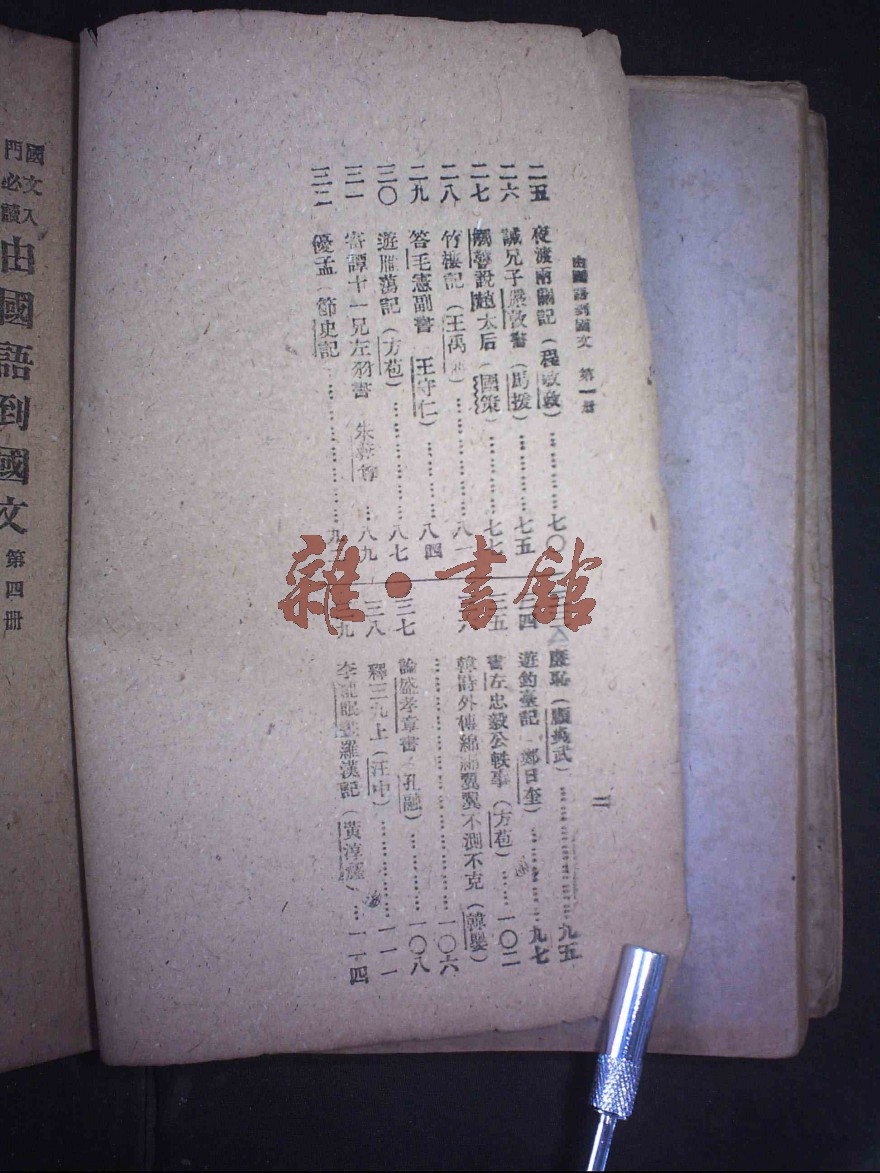 由國語到國文 第一册
二五 夜渡兩關記（程敏政）…………七〇
二六 誡兄子嚴敦書（馬援）…………七五
二七 觸讋說趙太后（國策）…………七七
二八 竹樓記（王禹）…………八一
二九 答毛憲副書 王守仁）…………八四
三〇 遊鴈蕩記（方苞）…………八七
三一 寄譚十一兄左羽書 朱彝尊 …八九
三二 優孟（節史記）…………九
廉恥（顧炎武）…………九五
四 遊釣臺記 鄭日奎）…………九七
五 書左忠毅公軼事（方苞）……一〇二
六 韓詩外傳綿綿翼翼不測不克（韓嬰）
…………一〇六
三七 論盛孝章書 孔融）…………一〇八
三八 釋三九上（汪中）…………一一一
九 李龍眠畫羅漢記（黃淳耀）…一一四
二
國文入門必讀
由國語到國文 第四冊
雜·書館